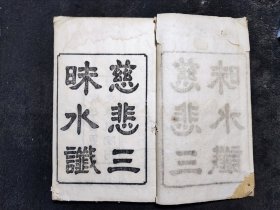 慈悲三
昧水讖